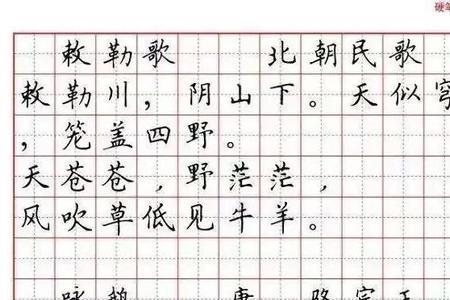 硬笔
敕勒歌 北朝民歌
敕勒川，阴山下。天似穹
，笼盖四野。
天苍苍，野茫茫，
风吹草低见牛羊。
咏鹅 唐 骆宾王